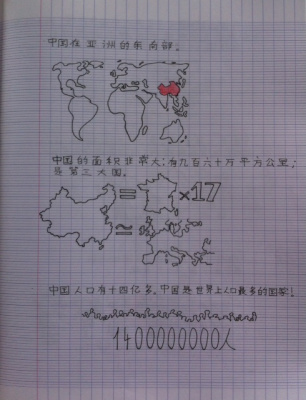 中国在亚洲的东南部。
中国的面积非常大:有九百六十万平方公里,
是第三大国。
= ×17
≃
中国人口有十四亿多。中国是世界上人口最多的国家!
1400000000人